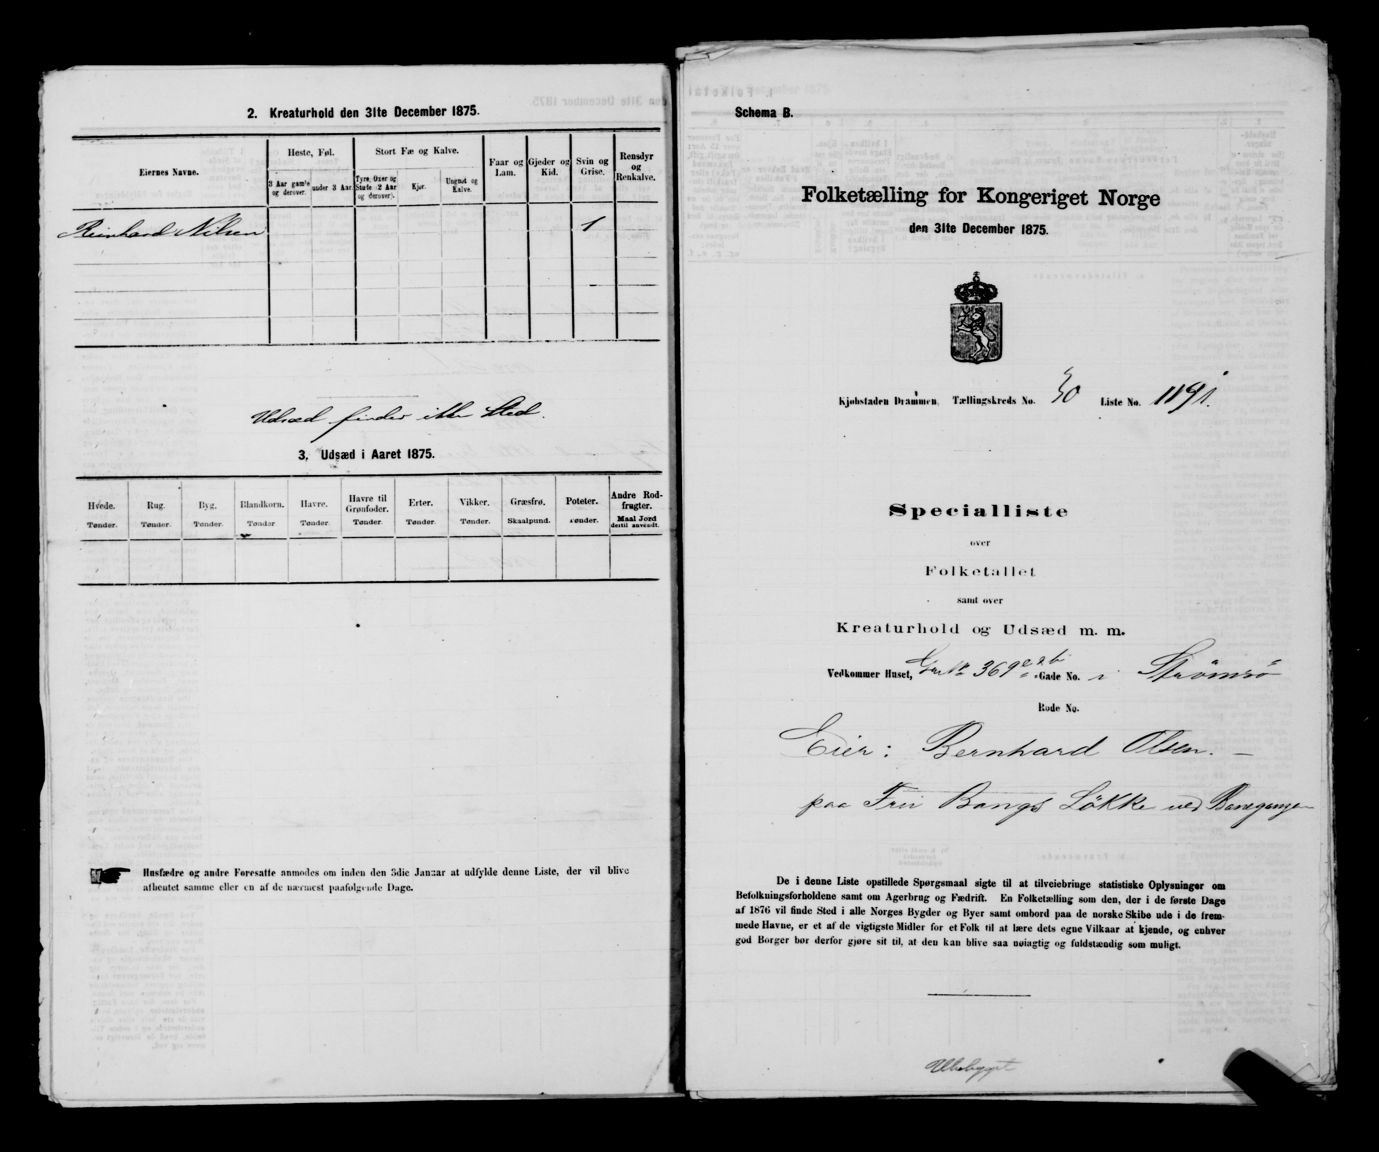 2. Kreaturhold den 31te December 1875.
Eiernes Navne.
Heste, Føl.
3 Aar gamle og derover.
under 3 Aar.
Stort Fæ og Kalve.
Tyre, Oxer og Stude (2 Aar og derover).
Kjør.
Ungnød og Kalve.
Faar og Lam.
Gjeder og Kid.
Svin og Grise.
Rensdyr og Renkalve.
Reinhard Nilsen 1
Udsæd finder ikke Sted.
3. Udsæd i Aaret 1875.
Hvede. Tønder.
Rug. Tønder.
Byg. Tønder.
Blandkorn. Tønder
Havre. Tønder.
Havre til Grønfoder. Tønder.
Erter. Tønder.
Vikker. Tønder.
Græsfrø. Skaalpund.
Poteter. Tønder.
Andre Rodfrugter. Maal Jord dertil anvendt.
Husfædre og andre Foresatte anmodes om inden den 3die Januar at udfylde denne Liste, der vil blive
afhentet samme eller en af de nærmest paafølgende Dage.
Schema B.
Folketælling for Kongeriget Norge
den 31te December 1875.
Kjøbstaden Drammen. Tællingskreds No. 30 Liste No. 1191.
Specialliste
over
Folketallet
samt over
Kreaturhold og Udsæd m. m.
Vedkommer Huset, 369 Gade No. i Strömsö
Rode No.
Eier: Bernhard Olsen.
paa Fru Bangs Lökke ved Banegangen
De i denne Liste opstillede Spørgsmaal sigte til at tilveiebringe statistiske Oplysninger om
Befolkningsforholdene samt om Agerbrug og Fædrift. En Folketælling som den, der i de første Dage
af 1876 vil finde Sted i alle Norges Bygder og Byer samt ombord paa de norske Skibe ude i de frem-
mede Havne, er et af de vigtigste Midler for et Folk til at lære dets egne Vilkaar at kjende, og enhver
god Borger bør derfor gjøre sit til, at den kan blive saa nøiagtig og fuldstændig som muligt.